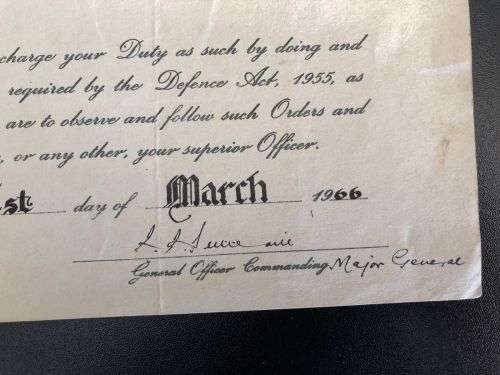 charge your Duty as such by doing and
required by the Defence Act, 1955, as
are to observe and follow such Orders and
, or any other, your superior Officer.
st day of March 1966
General Officer Commanding Major General